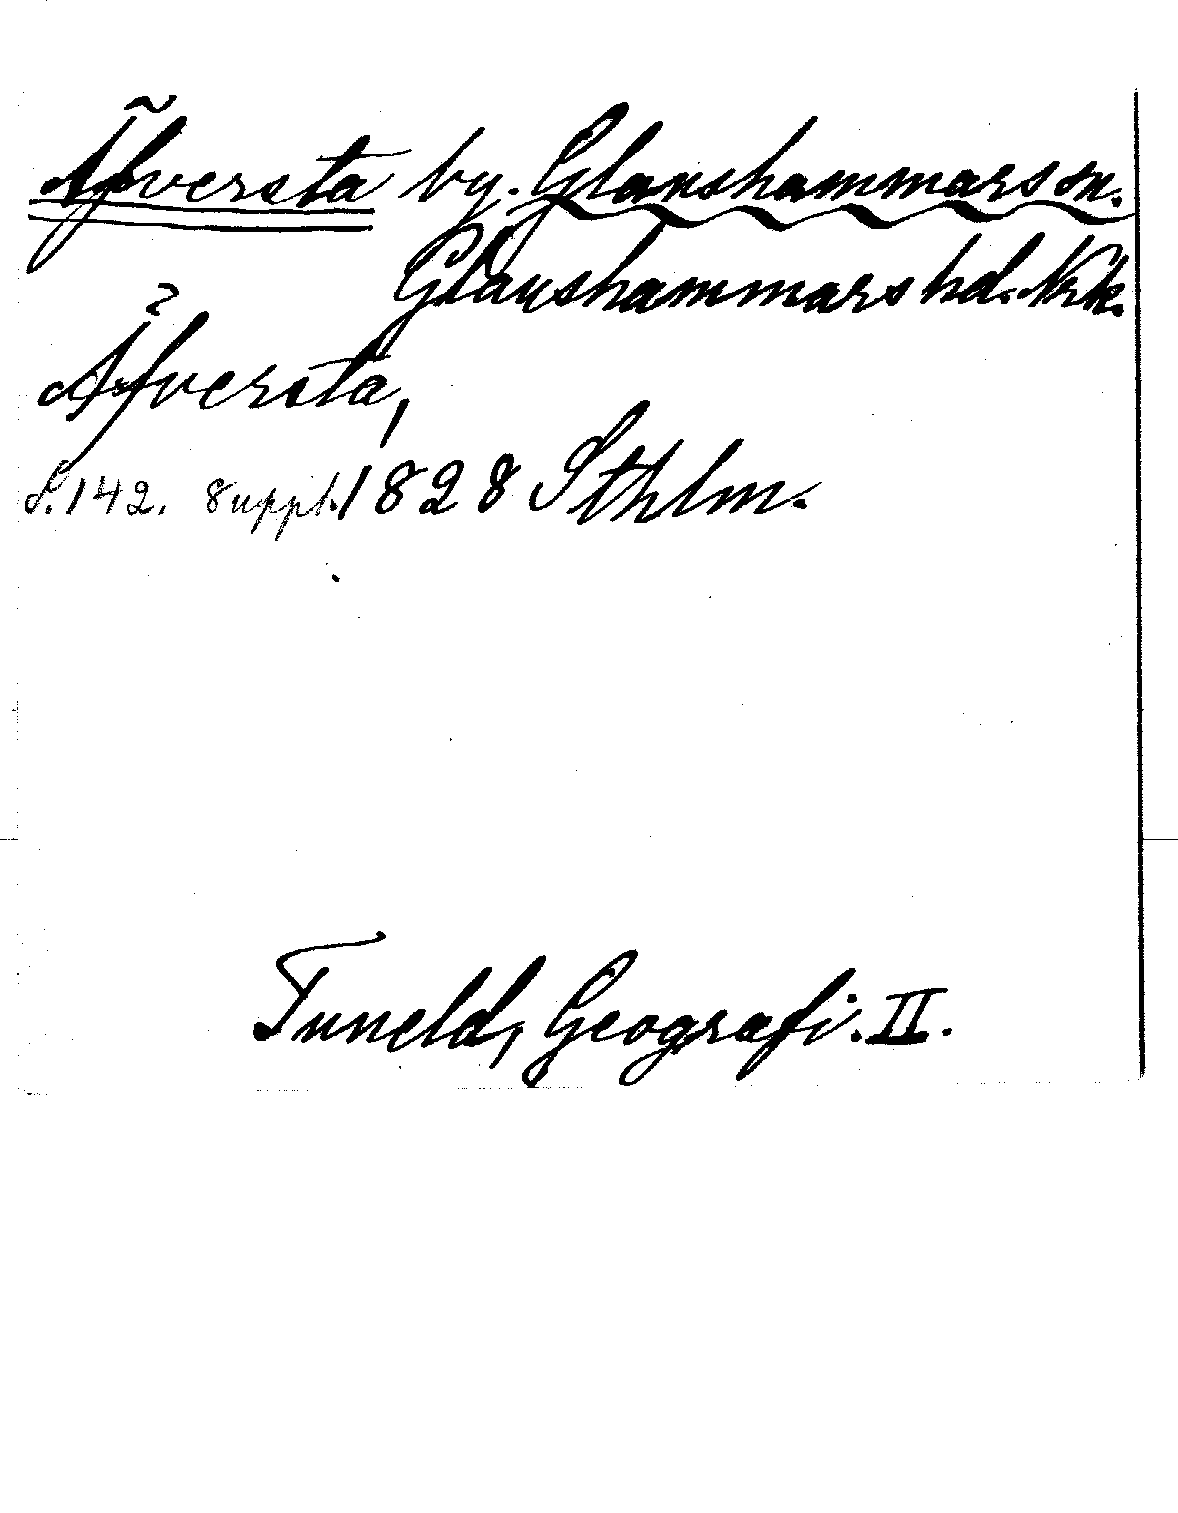 Äfversta by. Glanshammars sn.
Glanshammars hd. Nrk.
Äfversta,
S. 142. Suppl. 1828 Sthlm.
Tuneld, Geografi. II.